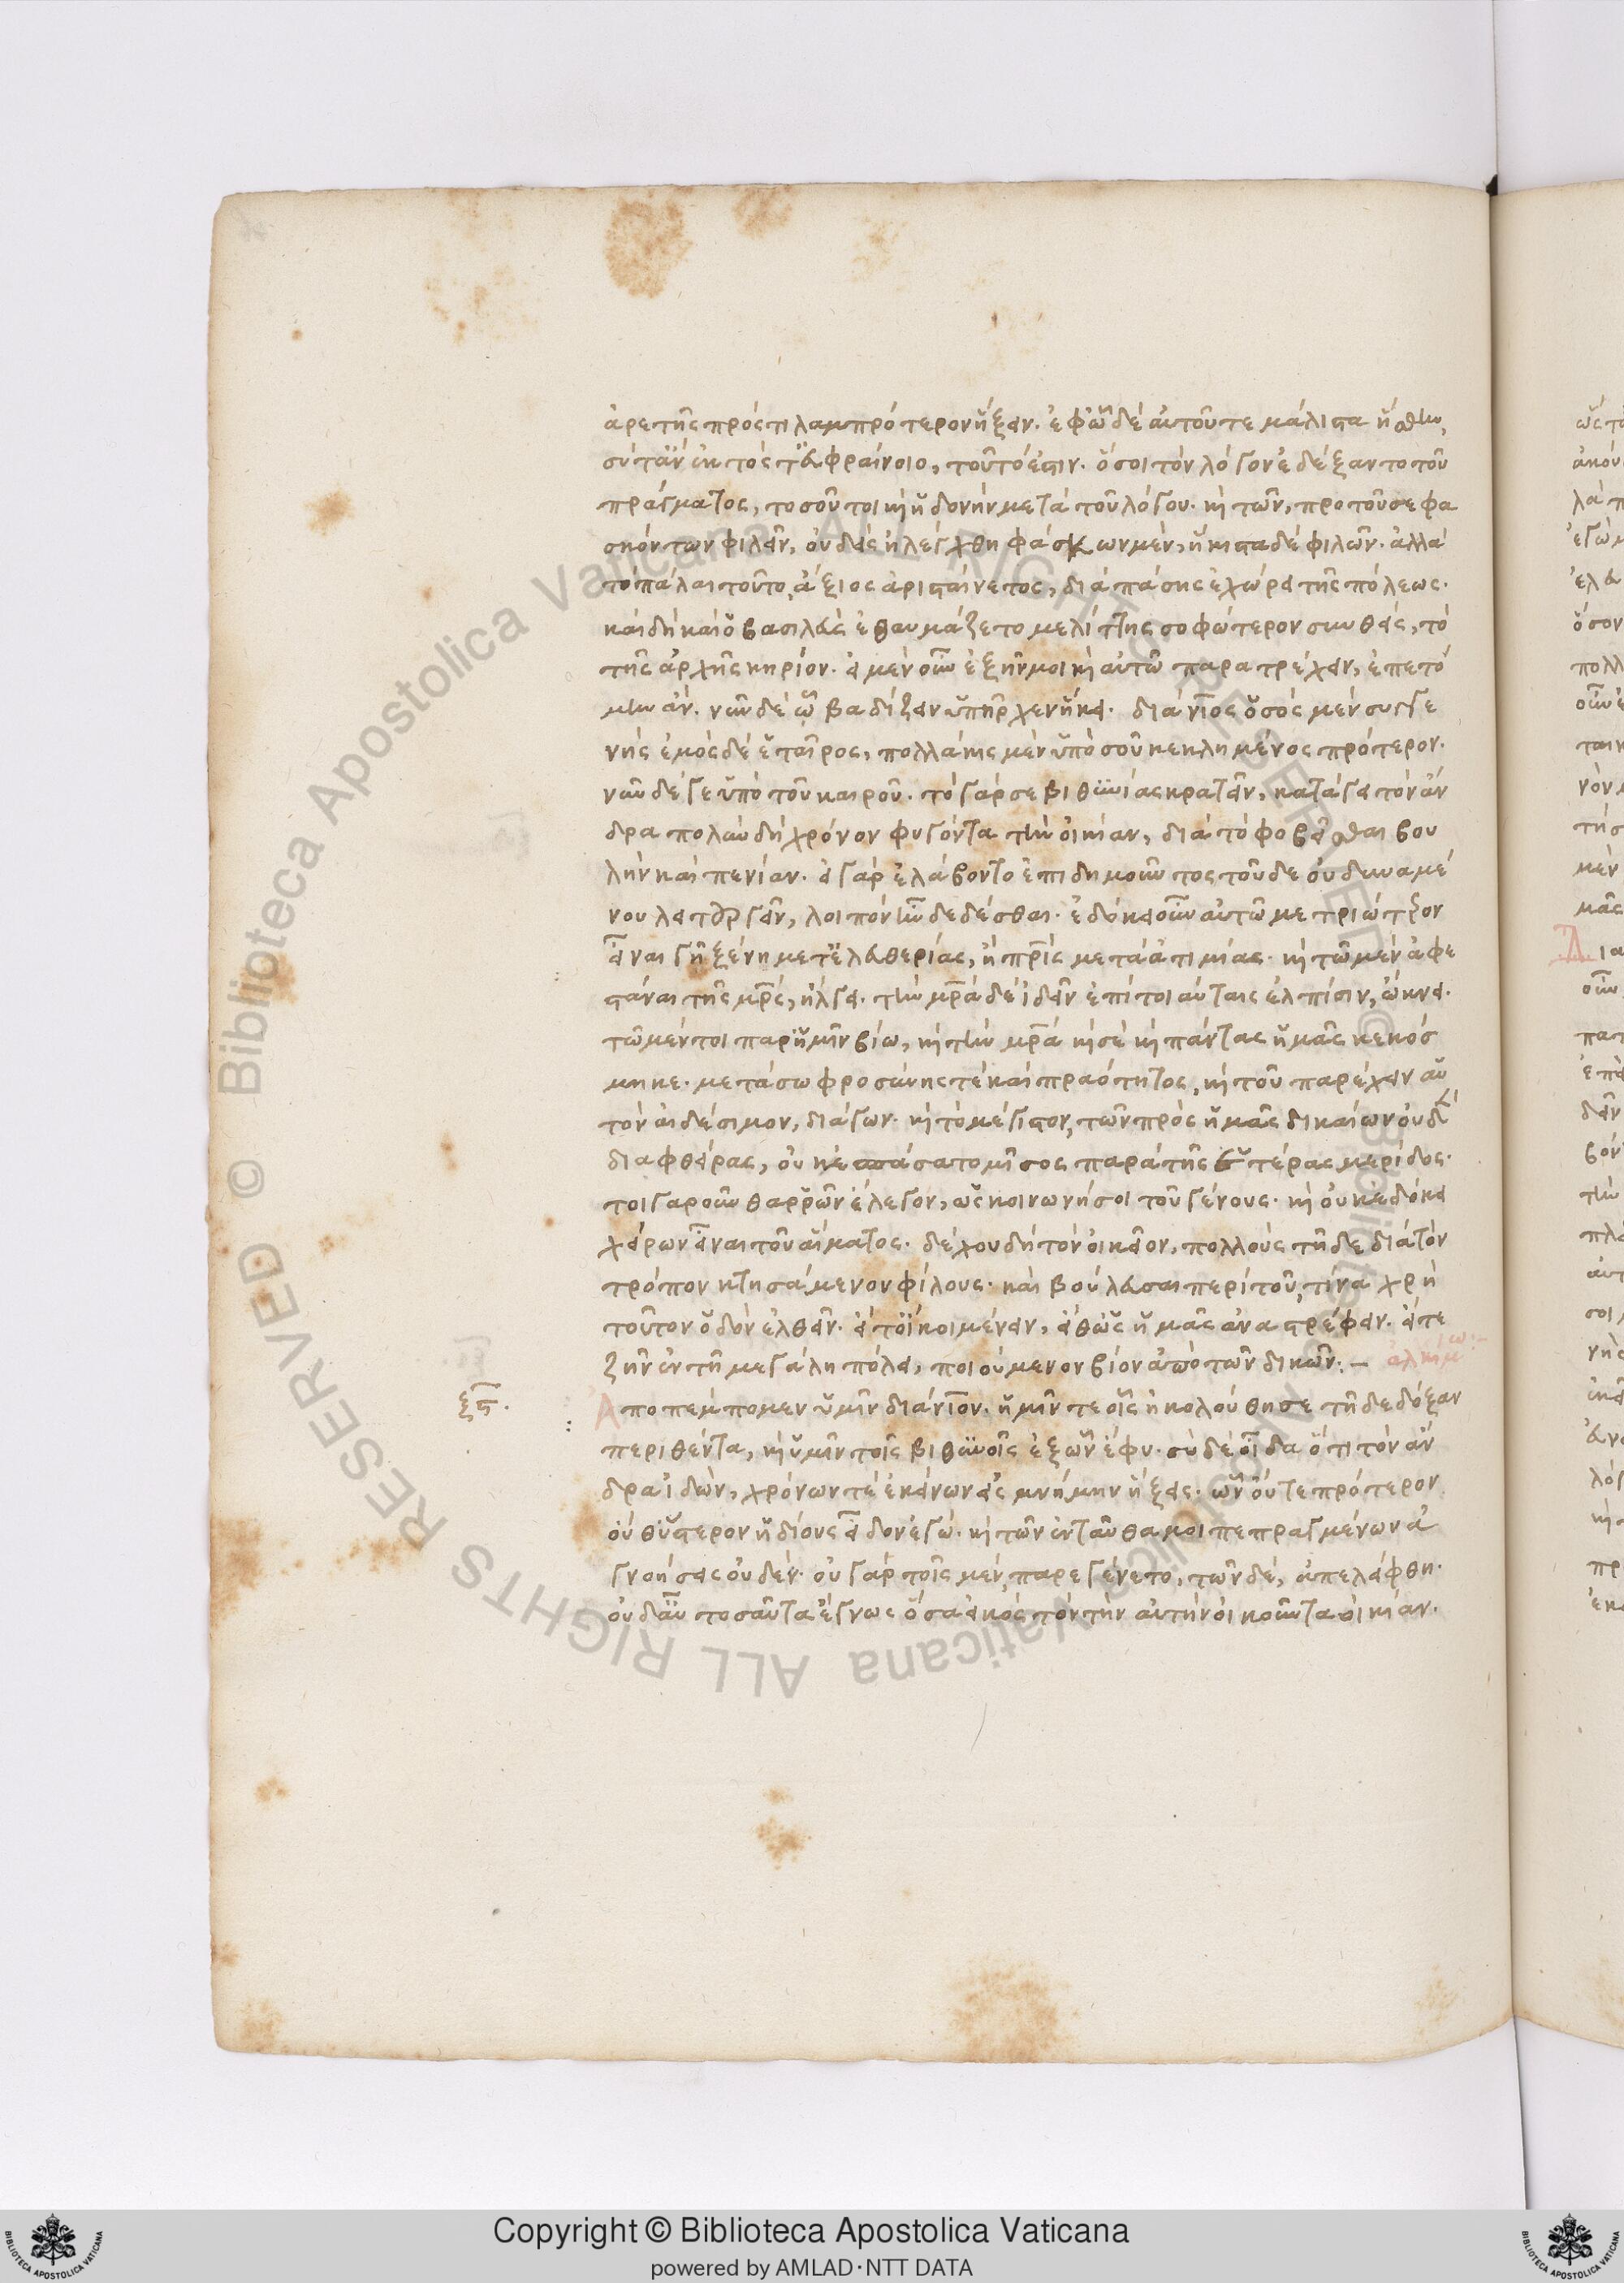 ἀρετῆς πρός τι λαμπρότερον ἥξειν. ἐφ ᾧ δὲ αὐτοῦ τε μάλιστα ἥσθην,
σύ τ ἂν εἰκότως εὐφραίνοιο, τοῦτό ἐστιν. ὅσοι τὸν λόγον ἐδέξαντο τοῦ
πράγματος, τοσοῦτοι καὶ ἡδονὴν μετὰ τοῦ λόγου. καὶ τῶν, προτοῦ σε φα
σκόντων φιλεῖν, οὐδεὶς ἠλέγχθη φάσκων μὲν, ἥκιστα δὲ φιλῶν. ἀλλὰ
τὸ πάλαι τοῦτο, ἄξιος ἀρισταίνετος, διὰ πάσης ἐχώρει τῆς πόλεως.
καὶ δὴ καὶ ὁ βασιλεὺς ἐθαυμάζετο μελίττης σοφώτερον συνθεὶς, τὸ
τῆς ἀρχῆς κηρίον. εἰ μὲν οὖν ἐξῆν μοι καὶ αὐτῶ παρατρέχειν, ἐπετό
μην ἄν. νῦν δὲ ᾧ βαδίζειν ὑπῆρχεν ἥκει. διάνιος ὁ σὸς μὲν συγγε
νὴς ἐμὸς δὲ ἑταῖρος, πολλάκις μὲν ὑπὸ σοῦ κεκλημένος πρότερον.
νῦν δέ γε ὑπὸ τοῦ καιροῦ. τὸ γάρ σε βιθυνίας κρατεῖν, κατάγει τὸν ἄν
δρα πολὺν δὴ χρόνον φυγόντα τὴν οἰκίαν, διὰ τὸ φοβεῖσθαι βου
λὴν καὶ πενίαν. εἰ γὰρ ἐλάβοντο ἐπιδημοῦντος τοῦδε οὐ δυναμέ
νου λειτουργεῖν, λοιπὸν ἦν δεδέσθαι. ἐδόκει οὖν αὐτῶ μετριώτερον
εἶναι γῆ ξένη μετ ἐλευθερίας, ἢ πατρὶς μετὰ ἀτιμίας. καὶ τῶ μὲν ἀφε
στάναι τῆς μητρὸς, ἤλγει. τὴν μητέρα δὲ ἰδεῖν ἐπὶ τοιαύταις ἐλπίσιν, ὤκνει.
τῶ μέντοι παρ ἡμῖν βίω, καὶ τὴν μητέρα καὶ σὲ καὶ πάντας ἡμᾶς κεκόσ
μηκε. μετὰ σωφροσύνης τὲ καὶ πραότητος, καὶ τοῦ παρέχειν αὑ
τὸν αἰδέσιμον, διάγων. καὶ τὸ μέγιστον, τῶν πρὸς ἡμᾶς δικαίων οὐδὲν
διαφθείρας, οὐκ ἐσπάσατο μῖσος παρὰ τῆς ἑτέρας μερίδος.
τοιγαροῦν θαρρῶν ἔλεγον, ὡς κοινωνήσοι τοῦ γένους. καὶ οὐκ ἐδόκει
χείρων εἶναι τοῦ αἵματος. δέχου δὴ τὸν οἰκεῖον, πολλοὺς τῇδε διὰ τὸν
τρόπον κτησάμενον φίλους. καὶ βούλευσαι περὶ τοῦ, τίνα χρὴ
τοῦτον ὁδὸν ἐλθεῖν. εἴτ οἴκοι μένειν, εἴθ ὡς ἡμᾶς ἀναστρέφειν. εἴτε
ζῆν ἐν τῆ μεγάλη πόλει, ποιούμενον βίον ἀπὸ τῶν δικῶν :– ἀλκίμω :–
ξϛ.
Ἀποπέμπομεν ὑμῖν διάνιον. ἡμῖν τε οἷς ἠκολούθησε τῆδε δόξαν
περιθέντα, καὶ ὑμῖν τοῖς βιθυνοῖς ἐξ ὧν ἔφυ. σὺ δὲ οἶδα ὅτι τὸν ἄν
δρα ἰδὼν, χρόνων τὲ ἐκείνων εἰς μνήμην ἥξεις. ὧν οὔτε πρότερον
οὔθ ὕστερον ἡδίους εἶδον ἐγώ. καὶ τῶν ἐνταῦθα μοι πεπραγμένων ἀ
γνοήσεις οὐδέν. οὐ γὰρ τοῖς μὲν, παρεγένετο, τῶν δὲ, ἀπελείφθη.
οὐδ αὖ τοσαῦτα ἔγνως ὅσα εἰκὸς τὸν τὴν αὐτὴν οἰκοῦντα οἰκίαν.
Copyright © Biblioteca Apostolica Vaticana
powered by AMLAD·NTT DATA